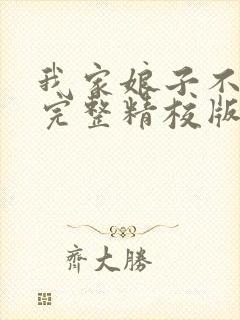 我家娘子不
完整精校版
齐大勝